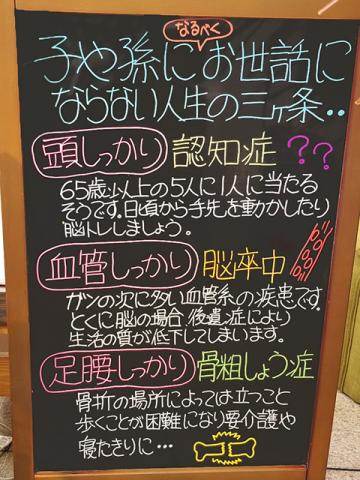 なるべく
子や孫にお世話に
ならない人生の三ヶ条‥
頭しっかり 認知症 ??
65歳以上の5人に1人に当たる
そうです。日頃から手先を動かしたり
脳トレしましょう。
血管しっかり 脳卒中
ガンの次に多い血管系の疾患です。
とくに脳の場合、後遺症により
生活の質が低下してしまいます。
足腰しっかり 骨粗しょう症
骨折の場所によっては立つこと
歩くことが困難になり要介護や
寝たきりに…